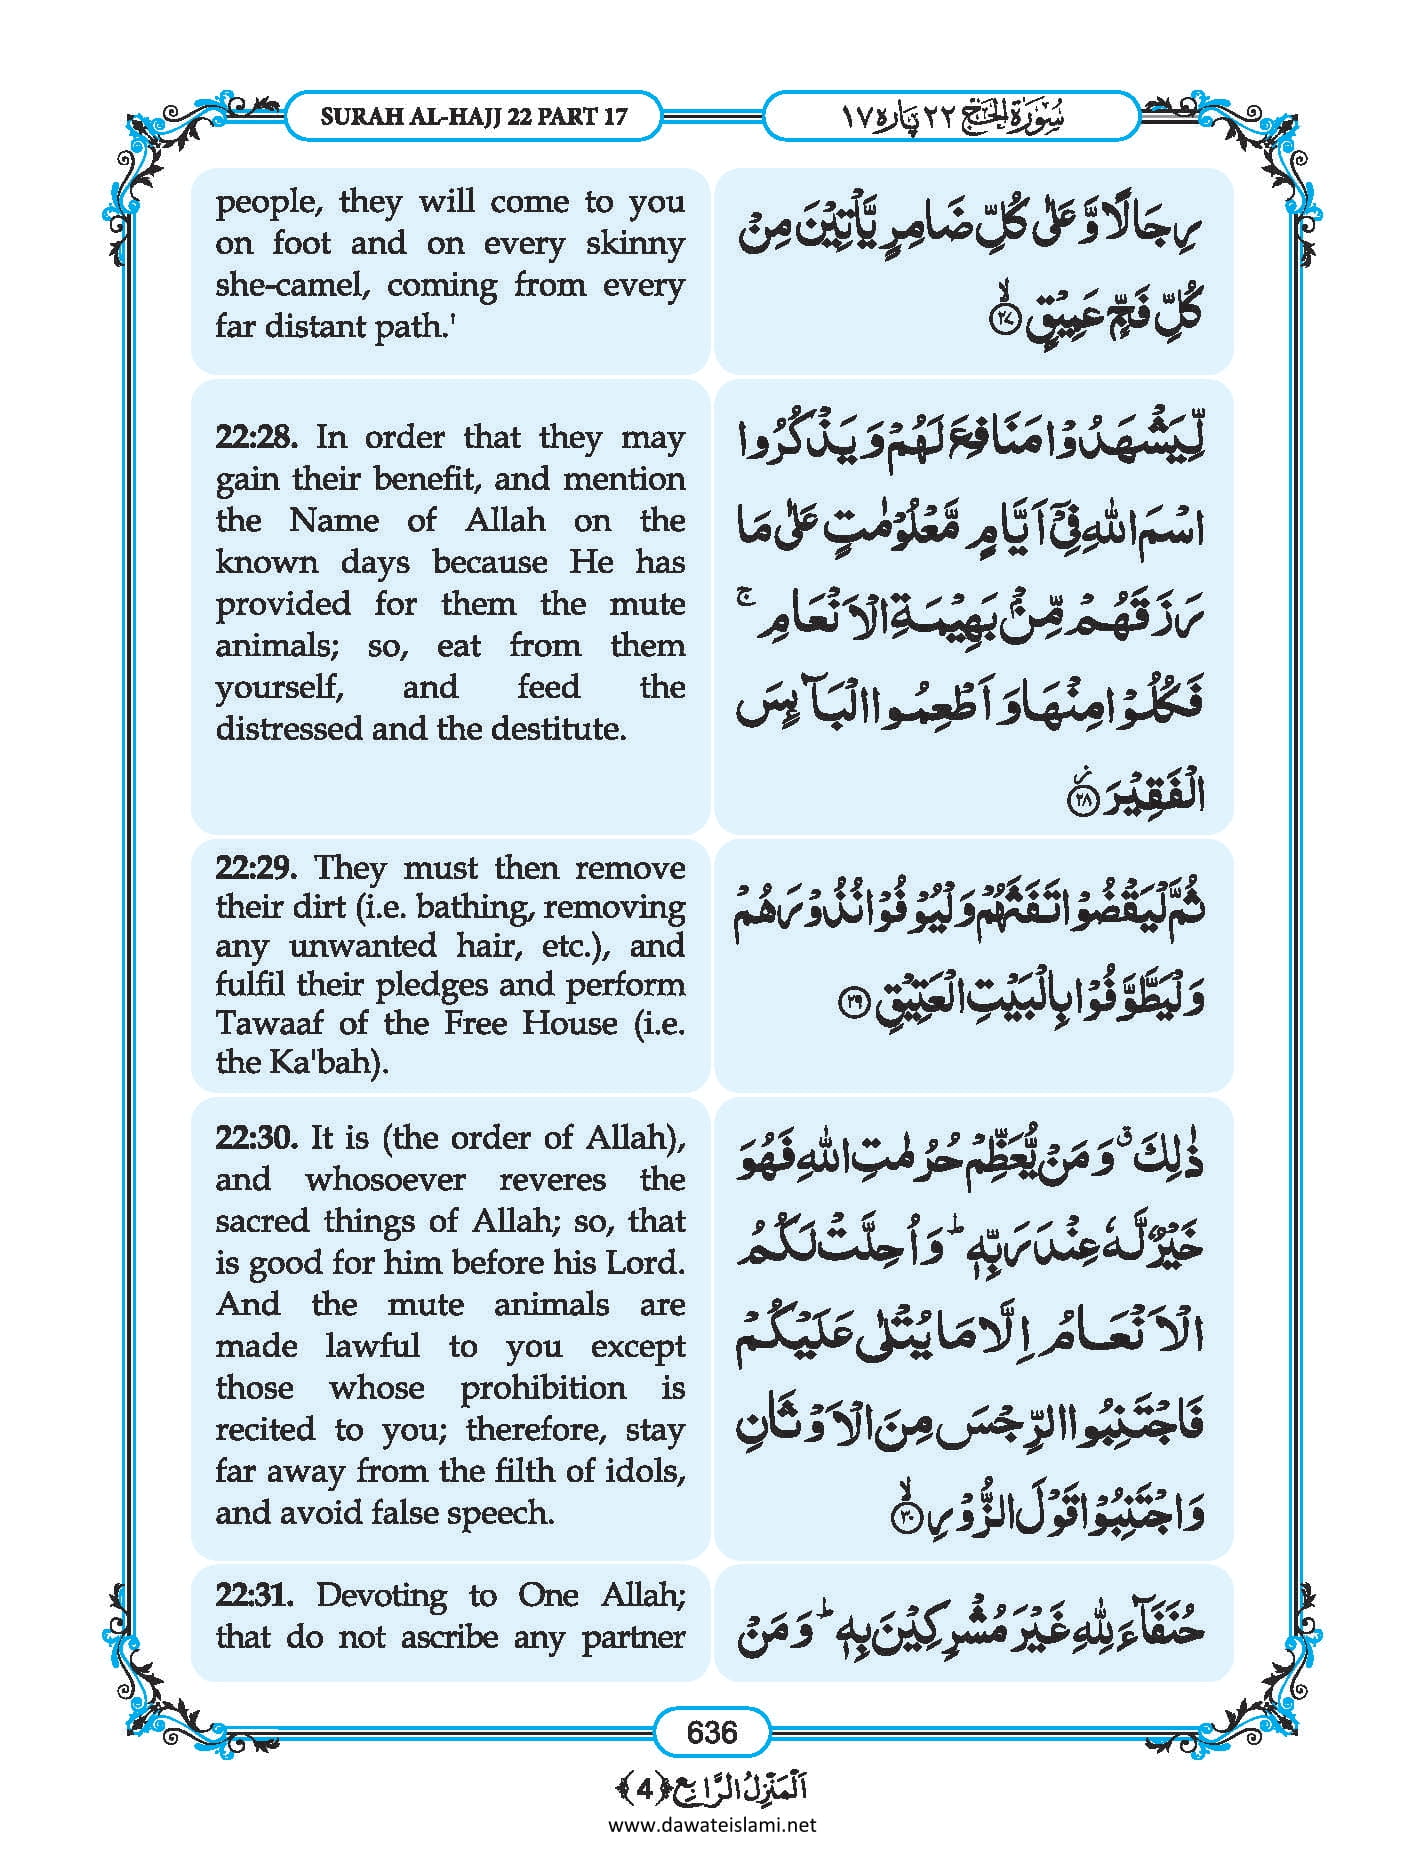 SURAH AL-HAJJ 22 PART 17
سُوْرَةُ الْحَجّ ٢٢ پارہ ١٧
people, they will come to you
on foot and on every skinny
she-camel, coming from every
far distant path.'
رِجَالًا وَّ عَلٰى كُلِّ ضَامِرٍ یَّاْتِیْنَ مِنْ
كُلِّ فَجٍّ عَمِیْقٍۙ ﴿٢٧﴾
22:28. In order that they may
gain their benefit, and mention
the Name of Allah on the
known days because He has
provided for them the mute
animals; so, eat from them
yourself, and feed the
distressed and the destitute.
لِّیَشْهَدُوْا مَنَافِعَ لَهُمْ وَ یَذْكُرُوا
اسْمَ اللّٰهِ فِیْۤ اَیَّامٍ مَّعْلُوْمٰتٍ عَلٰى مَا
رَزَقَهُمْ مِّنْۢ بَهِیْمَةِ الْاَنْعَامِۚ
فَكُلُوْا مِنْهَا وَ اَطْعِمُوا الْبَآىٕسَ
الْفَقِیْرَ٘ ﴿٢٨﴾
22:29. They must then remove
their dirt (i.e. bathing, removing
any unwanted hair, etc.), and
fulfil their pledges and perform
Tawaaf of the Free House (i.e.
the Ka'bah).
ثُمَّ لْیَقْضُوْا تَفَثَهُمْ وَ لْیُوْفُوْا نُذُوْرَهُمْ
وَ لْیَطَّوَّفُوْا بِالْبَیْتِ الْعَتِیْقِ ﴿٢٩﴾
22:30. It is (the order of Allah),
and whosoever reveres the
sacred things of Allah; so, that
is good for him before his Lord.
And the mute animals are
made lawful to you except
those whose prohibition is
recited to you; therefore, stay
far away from the filth of idols,
and avoid false speech.
ذٰلِكَۗ وَ مَنْ یُّعَظِّمْ حُرُمٰتِ اللّٰهِ فَهُوَ
خَیْرٌ لَّهٗ عِنْدَ رَبِّهٖؕ وَ اُحِلَّتْ لَكُمُ
الْاَنْعَامُ اِلَّا مَا یُتْلٰى عَلَیْكُمْ
فَاجْتَنِبُوا الرِّجْسَ مِنَ الْاَوْثَانِ
وَ اجْتَنِبُوْا قَوْلَ الزُّوْرِۙ ﴿٣٠﴾
22:31. Devoting to One Allah;
that do not ascribe any partner
حُنَفَآءَ لِلّٰهِ غَیْرَ مُشْرِكِیْنَ بِهٖؕ وَ مَنْ
636
اَلْمَنْزِلُ الرَّابِع ﴿4﴾
www.dawateislami.net